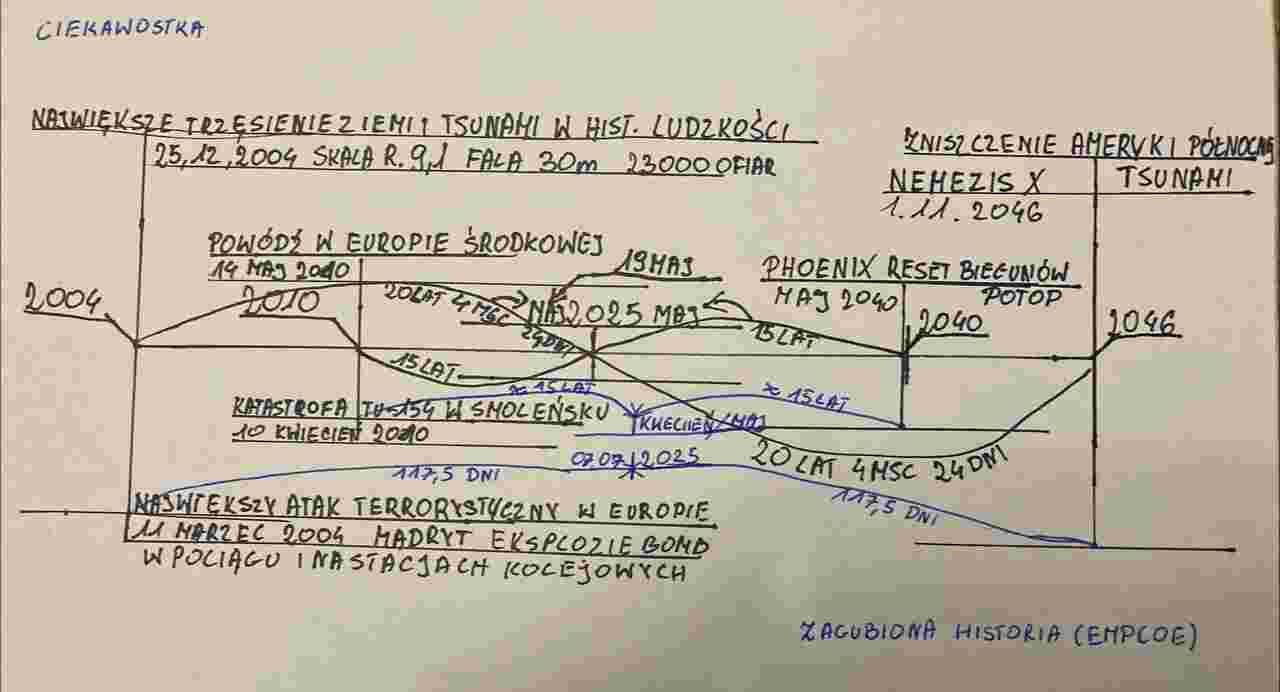 CIEKAWOSTKA
NAJWIĘKSZE TRZĘSIENIE ZIEMI I TSUNAMI W HIST. LUDZKOŚCI
25,12,2004 SKALA R. 9,1 FALA 30m 23000 OFIAR
ZNISZCZENIE AMERYKI PÓŁNOCNEJ
NEMEZIS X TSUNAMI
1.11.2046
POWÓDŹ W EUROPIE ŚRODKOWEJ
14 MAJ 2010
19 MAJ
PHOENIX RESET BIEGUNÓW
MAJ 2040 POTOP
2004
2010
20 LAT 4 MSC 24 DNI
MAJ 2025 MAJ
15 LAT
2040
2046
15 LAT
≈ 15 LAT
≈ 15 LAT
KATASTROFA TU-154 W SMOLEŃSKU
10 KWIECIEŃ 2010
KWIECIEŃ/MAJ
20 LAT 4 MSC 24 DNI
117,5 DNI
07.07.2025
117,5 DNI
NAJWIĘKSZY ATAK TERRORYSTYCZNY W EUROPIE
11 MARZEC 2004 MADRYT EKSPLOZJE BOMB
W POCIĄGU I NA STACJACH KOLEJOWYCH
ZAGUBIONA HISTORIA (EMPCOE)